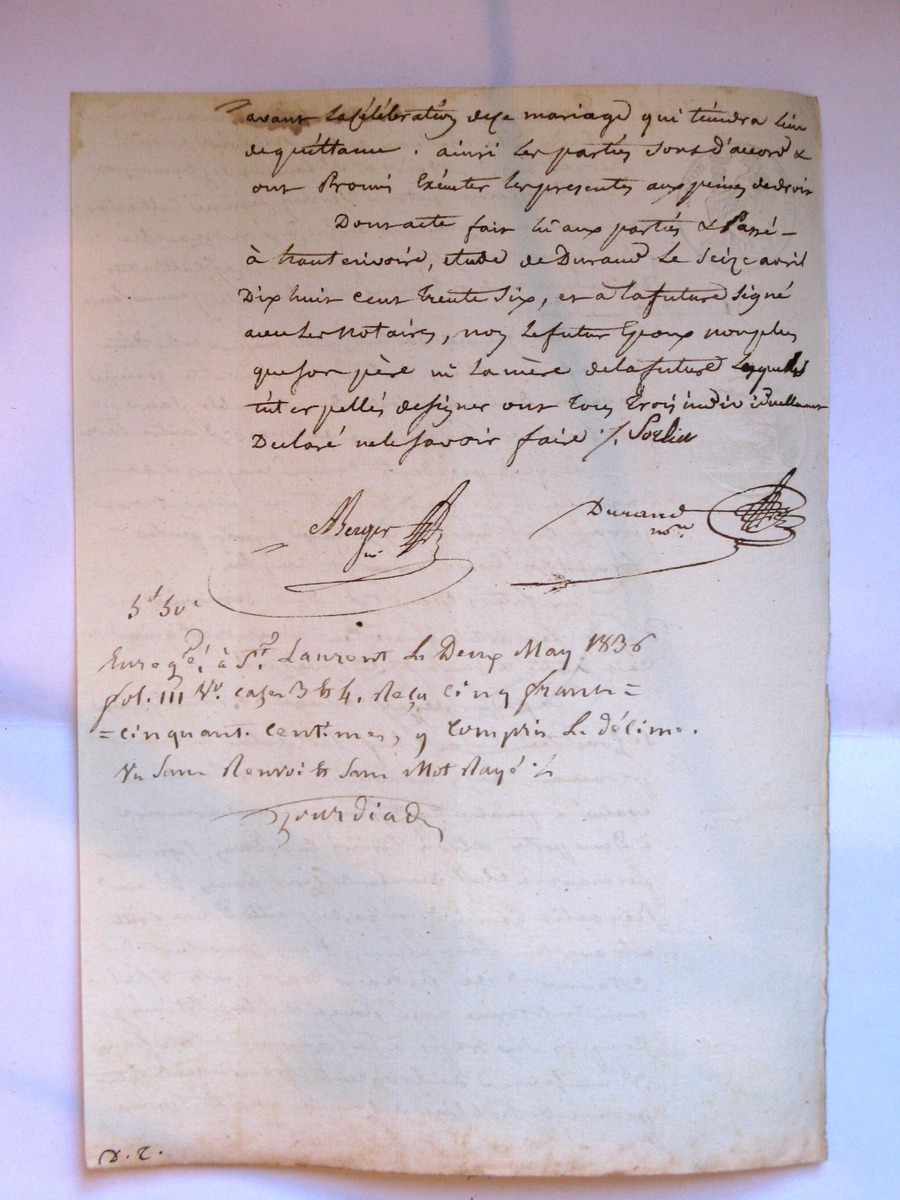 avant la célébration de ce mariage qui tiendra lieu
de quittance. ainsi les parties sont d'accord &
ont Promis Exécuter les presentes aux peines de droit
Dont acte fait lu aux parties & Passé -
à hauterivoire, etude de Durand Le Seize avril
Dix huit cent trente Six, et a la future Signé
avec Les Notaires, non Le futur Epoux non plus
que son père ni La mère de la future Lesquels
interpellés de signer ont tous trois individuellement
Déclaré ne le savoir faire ./. Sorlin
ABerger
nre
Durand
nore
5f 50c
Enregé. à St. Laurent le Deux May 1836
fol. 111 Vo. cazes 3 & 4. Reçu cinq francs =
= cinquante centimes, y compris le décime.
Vu Sans Renvoi & Sans Mot Rayé ./.
Bourdiad
D. T.